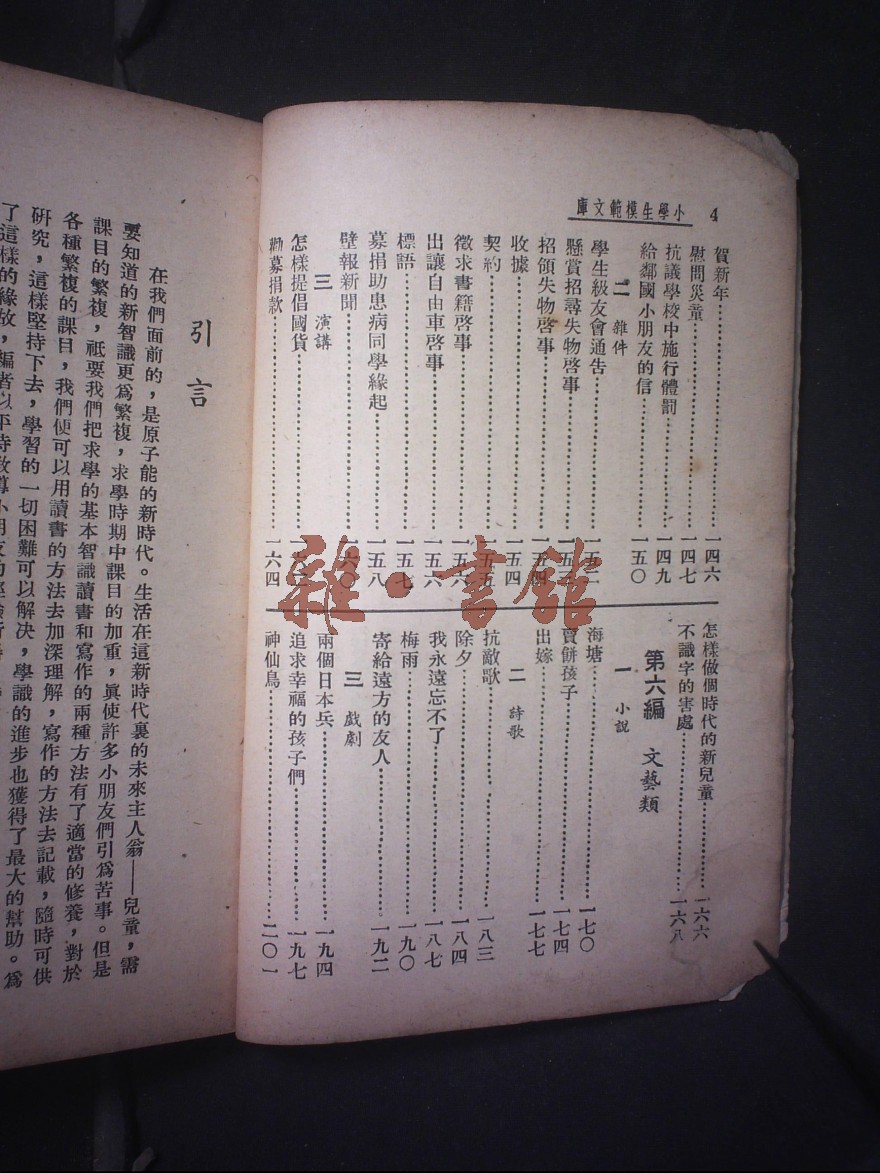 4 小學生模範文庫
賀新年 一四六
慰問災童 一四七
抗議學校中施行體罰 一四九
給鄰國小朋友的信 一五〇
二 雜件
學生級友會通告
懸賞招尋失物啓事
招領失物啓事
收據 一五四
契約
徵求書籍啓事
出讓自由車啓事 一五六
標語 一五七
募捐助患病同學緣起 一五八
壁報新聞
三 演講
怎樣提倡國貨
勸募捐款 一六四
怎樣做個時代的新兒童 一六六
不識字的害處 一六八
第六編 文藝類
一 小說
海塘 一七〇
賣餅孩子 一七四
出嫁 一七七
二 詩歌
抗敵歌 一八三
除夕 一八四
我永遠忘不了 一八七
梅雨 一九〇
寄給遠方的友人 一九二
三 戲劇
兩個日本兵 一九四
追求幸福的孩子們 一九七
神仙鳥 二〇一
雜·書館
引言
在我們面前的，是原子能的新時代。生活在這新時代裏的未來主人翁——兒童，需
要知道的新智識更爲繁複，求學時期中課目的加重，眞使許多小朋友們引爲苦事。但是
課目的繁複，祇要我們把求學的基本智識讀書和寫作的兩種方法有了適當的修養，對於
各種繁複的課目，我們便可以用讀書的方法去加深理解，寫作的方法去記載，隨時可供
研究，這樣堅持下去，學習的一切困難可以解決，學識的進步也獲得了最大的幫助。爲
了這樣的緣故，編者以平時教導小朋友的經驗